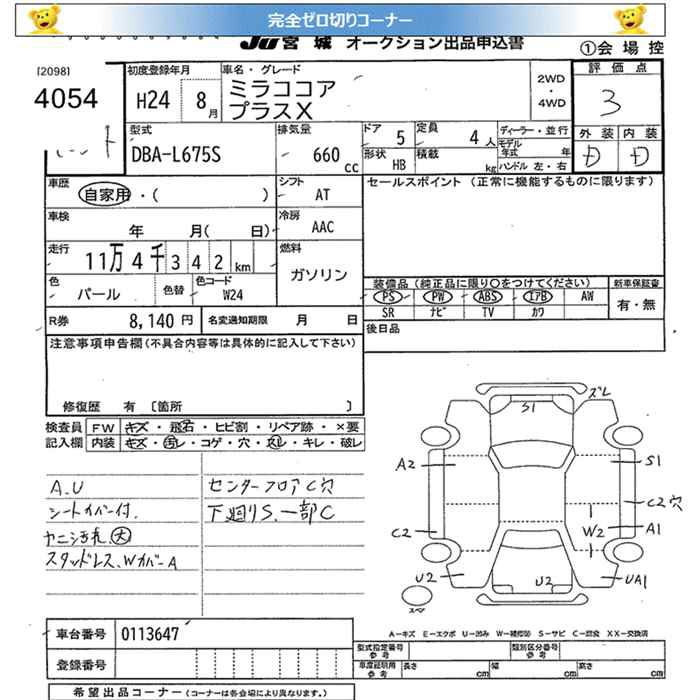 完全ゼロ切りコーナー
JU 宮城 オークション出品申込書
①会場控
[2098]
4054
初度登録年月
H24 8月
車名・グレード
ミラココア
プラスX
2WD
・
4WD
評価点
3
外装 内装
D D
型式
DBA-L675S
排気量
660 cc
ドア 5
定員 4人
形状 HB
積載 kg
ディーラー・並行
モデル年式 年
ハンドル 左・右
車歴
自家用・( )
シフト
AT
セールスポイント (正常に機能するものに限ります)
車検
年 月( 日)
冷房
AAC
走行
11万4千342km
燃料
ガソリン
色
パール
色替
色コード
W24
装備品(純正品に限り○をつけてください)
PS PW ABS エアB AW
SR ナビ TV カワ
新車保証書
有・無
R券 8,140円
名変通知期限 月 日
後日品
注意事項申告欄(不具合内容等は具体的に記入して下さい)
修復歴 有 〔箇所 〕
検査員記入欄
FW キズ・飛石・ヒビ割・リペア跡・×要
内装 キズ・汚レ・コゲ・穴・スレ・キレ・破レ
A.U
シートカバー付.
ヤニ汚れ 大
スタッドレス、Wカバ-A
センターフロアC穴
下廻りS、一部C
ズレ
S1
A2
S1
C2穴
A1
W2
C2
U2
U2
UA1
スペ
A-キズ E-エクボ U-凹み W-補修跡 S-サビ C-腐食 XX-交換済
車台番号 0113647
登録番号
型式指定番号
参考
類別区分番号
参考
車度証明用
参考
長さ cm
幅 cm
高さ cm
希望出品コーナー(コーナーは各会場により異なります。)